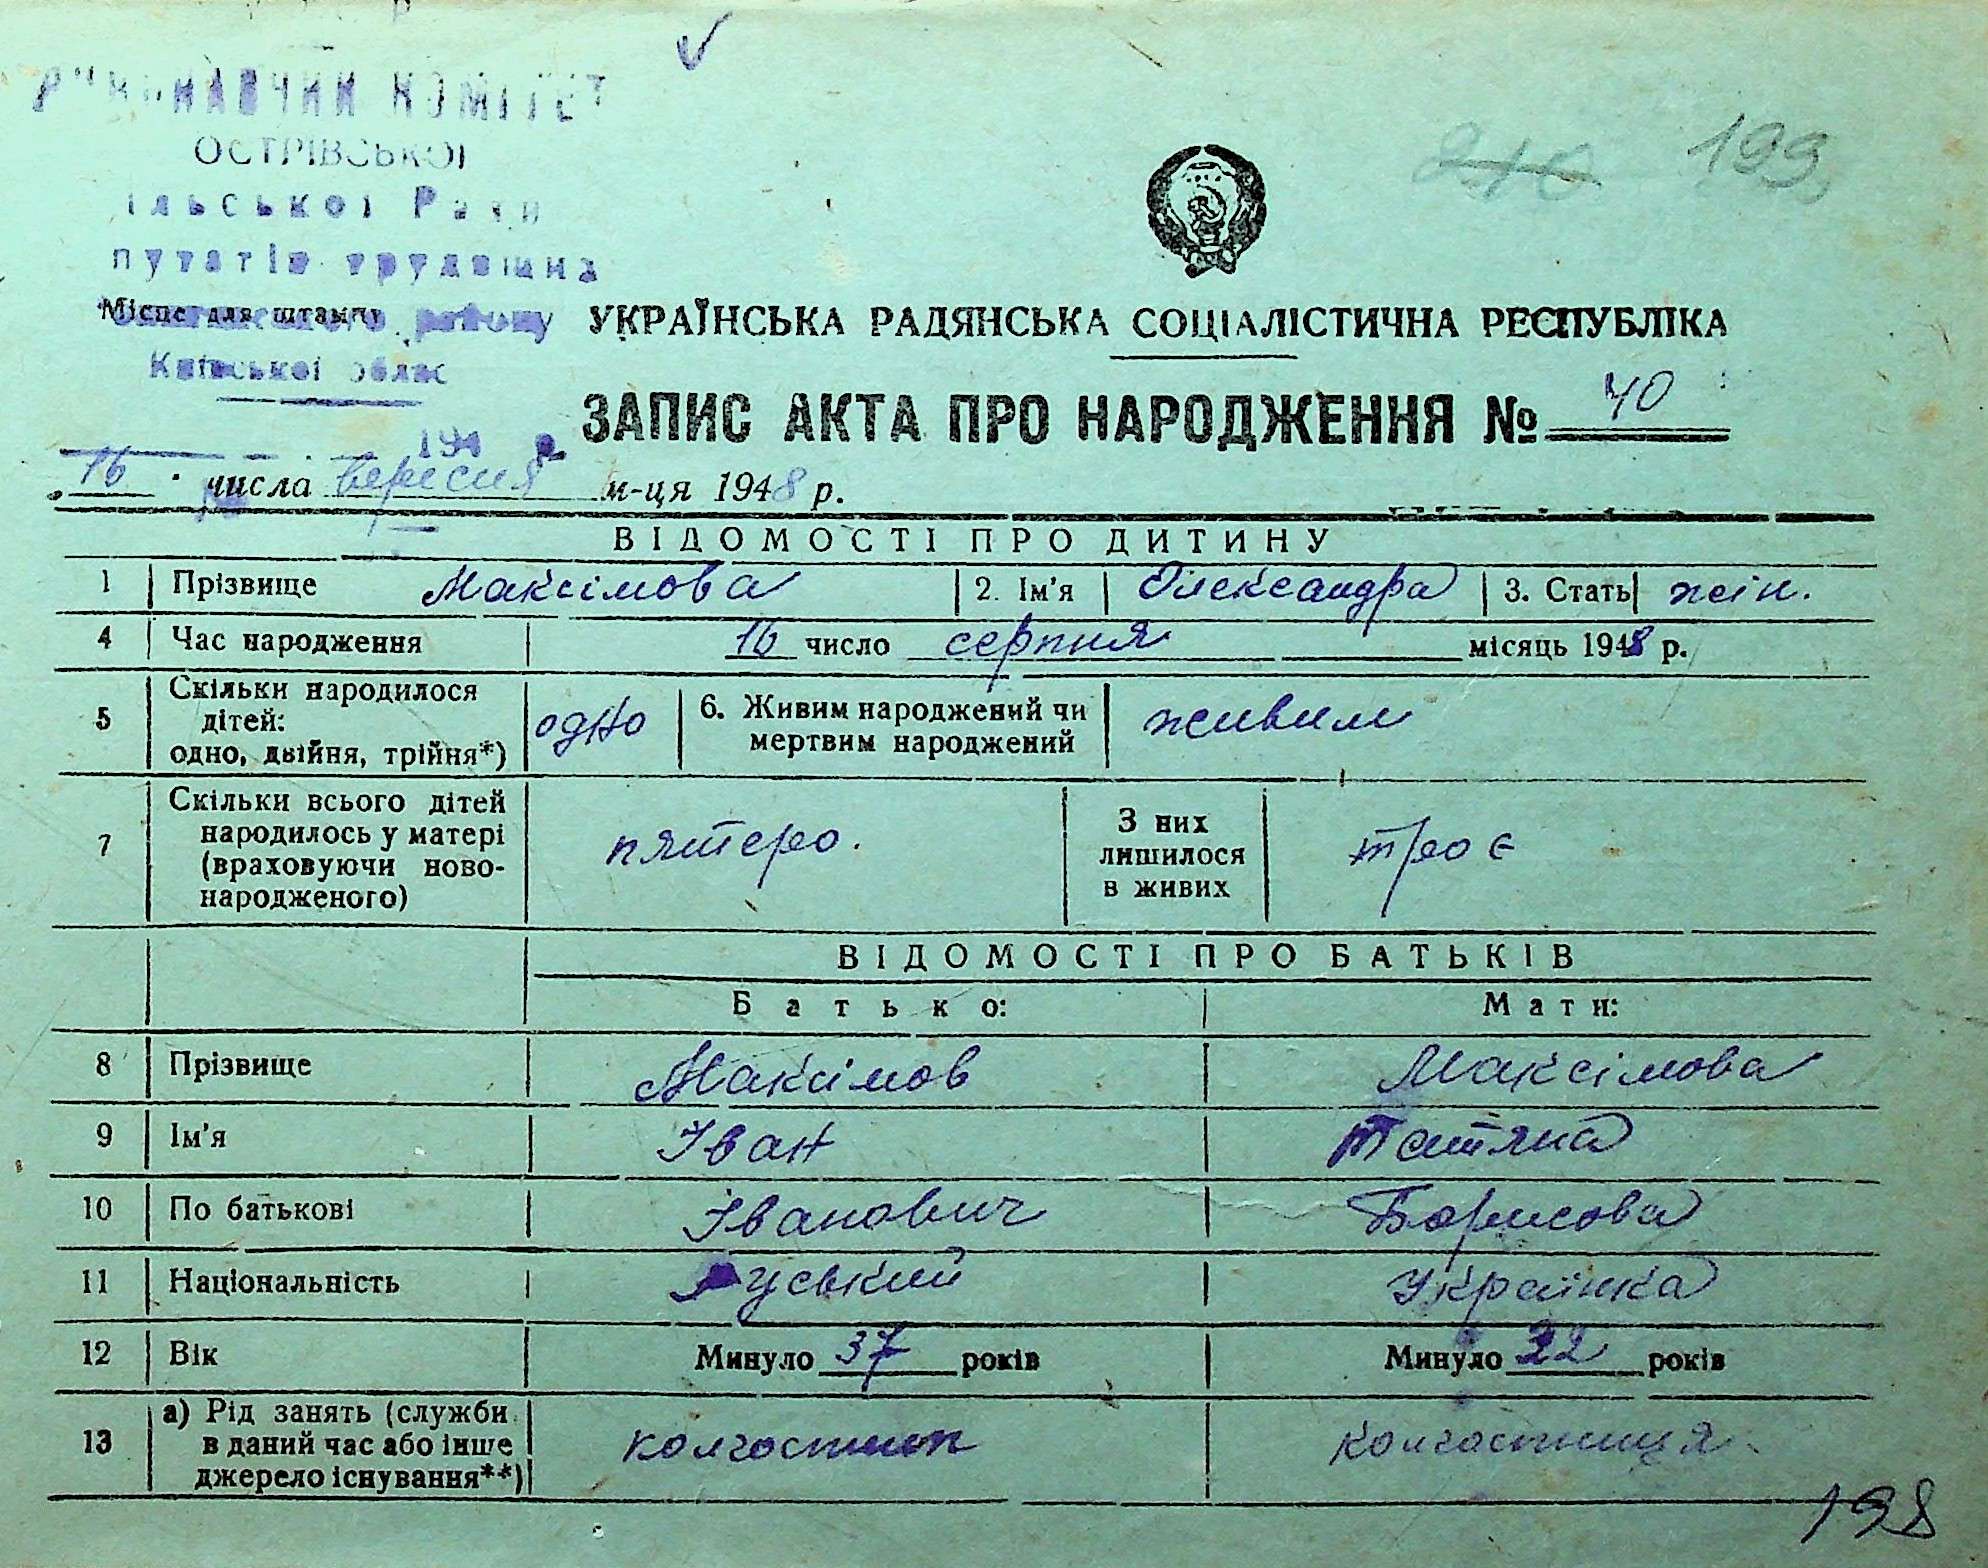 КОМІТЕТ
ОСТРІВСЬКОЇ
ільської Ради
путатів трудящих
Місце для штампу району
Київської облас
199
УКРАЇНСЬКА РАДЯНСЬКА СОЦІАЛІСТИЧНА РЕСПУБЛІКА
ЗАПИС АКТА ПРО НАРОДЖЕННЯ № 40
194
„16" числа вересня м-ця 1948 р.
ВІДОМОСТІ ПРО ДИТИНУ
1 Прізвище Максімова 2. Ім'я Олександра 3. Стать жін.
4 Час народження 16 число серпня місяць 1948 р.
5 Скільки народилося дітей: одно, двійня, трійня*) одно 6. Живим народжений чи мертвим народжений живим
7 Скільки всього дітей народилось у матері (враховуючи ново-народженого) пятеро. З них лишилося в живих троє
ВІДОМОСТІ ПРО БАТЬКІВ
Батько: Мати:
8 Прізвище Максімов Максімова
9 Ім'я Іван Татяна
10 По батькові Іванович Борисова
11 Національність Руський Українка
12 Вік Минуло 37 років Минуло 22 років
13 а) Рід занять (служби в даний час або інше джерело існування**) колгоспник колгоспниця
198